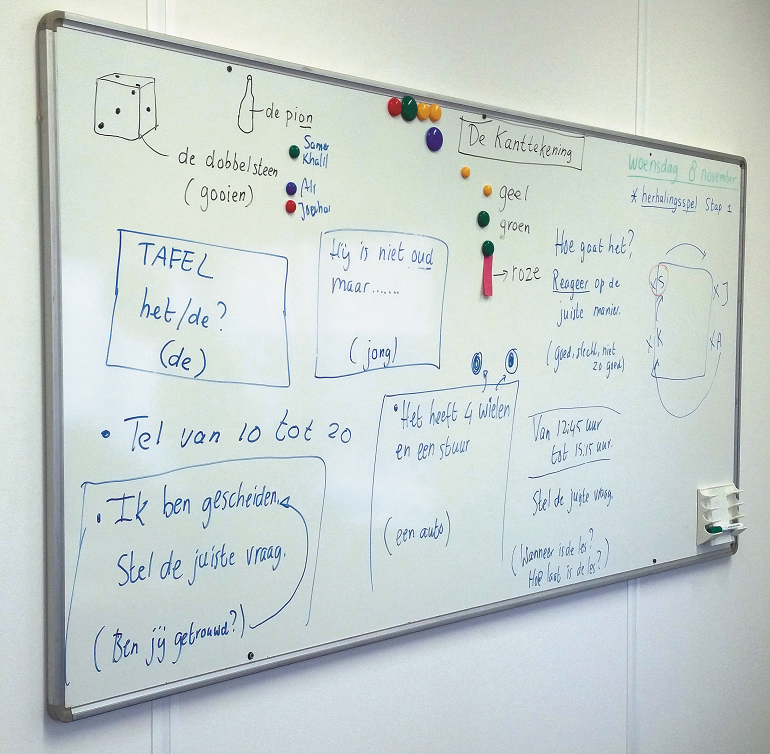 de pion
de dobbelsteen
(gooien)
Samer
Khalil
Ali
De Kanttekening
geel
groen
roze
woensdag 8 november
* herhalingsspel Stap 1
TAFEL
het/de?
(de)
Hij is niet oud
maar.......
(jong)
Hoe gaat het?
Reageer op de
juiste manier.
(goed, slecht, niet
zo goed)
S
X J
X K
X A
• Tel van 10 tot 20
• Het heeft 4 wielen
en een stuur
(een auto)
Van 12:45 uur
tot 15:15 uur.
Stel de juiste vraag.
(Wanneer is de les?
Hoe laat is de les?)
• Ik ben gescheiden.
Stel de juiste vraag.
(Ben jij getrouwd?)